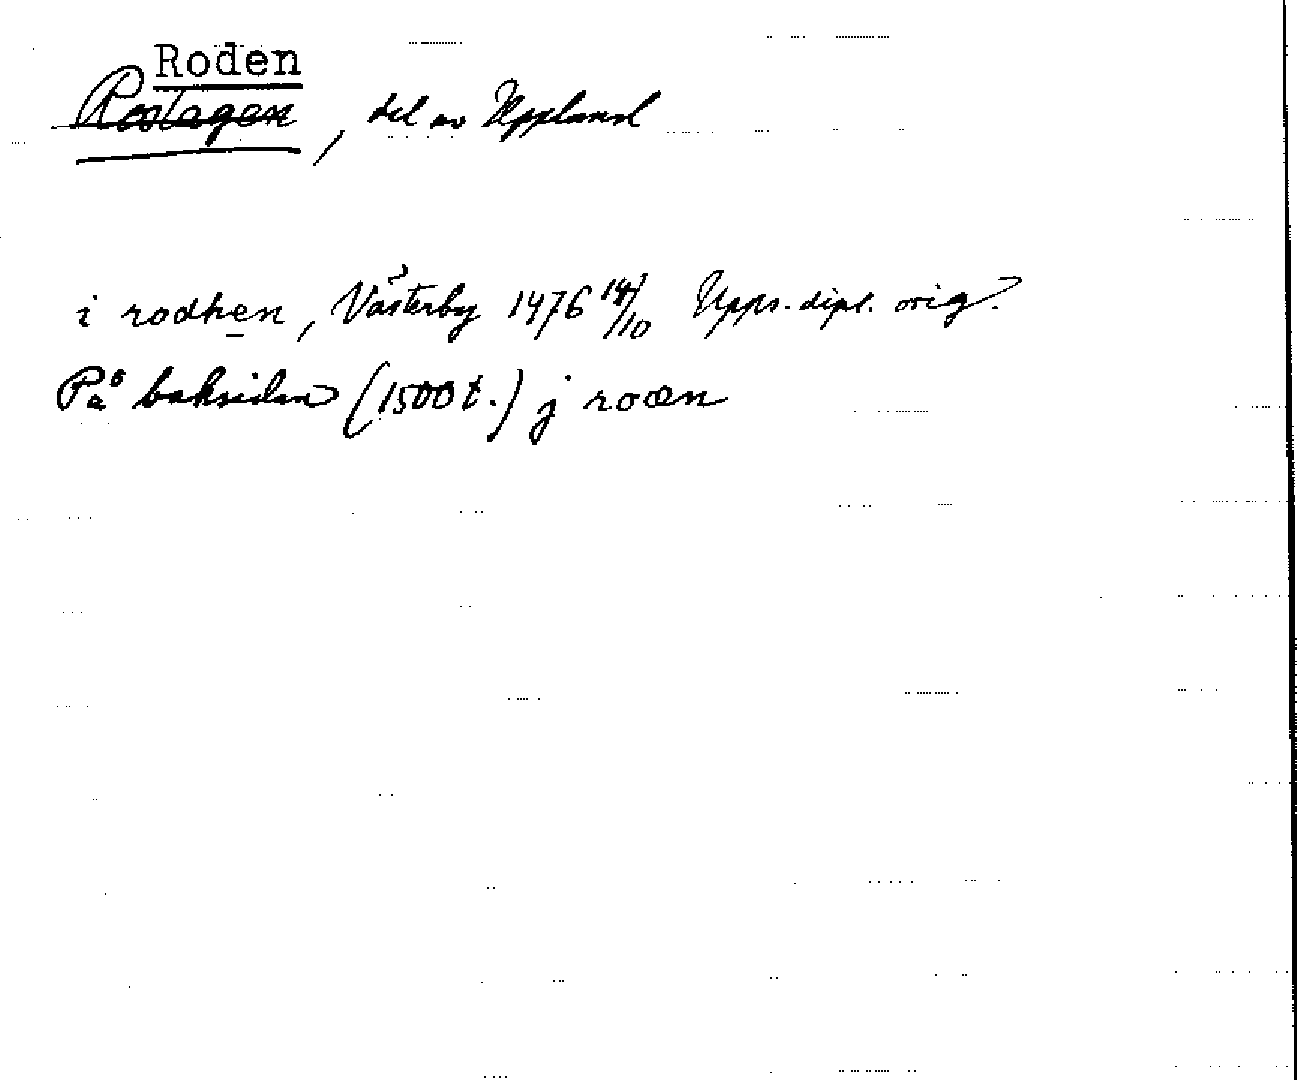 Roden
Roslagen, del av Uppland
i rodhen, Västerby 1476 14/10 Upps. dipl. orig.
På baksidan (1500 t.) j roæn